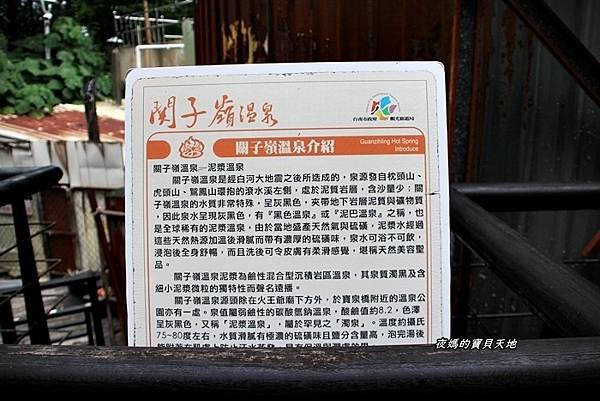 關子嶺溫泉
台南市政府 觀光旅遊局
關子嶺溫泉介紹
Guanzihling Hot Spring
Introduce
關子嶺溫泉—泥漿溫泉
關子嶺溫泉是經白河大地震之後所造成的,泉源發自枕頭山、
虎頭山、鷲鳳山環抱的滾水溪左側,處於泥質岩層,含沙量少;關
子嶺溫泉的水質非常特殊,呈灰黑色,夾帶地下岩層泥質與礦物質
,因此泉水呈現灰黑色,有『黑色溫泉』或『泥巴溫泉』之稱,也
是全球稀有的泥漿溫泉,由於當地盛產天然氣與硫磺,泥漿水經過
這些天然熱源加溫後滑膩而帶有濃厚的硫磺味,泉水可浴不可飲,
浸泡後全身舒暢,而且洗後可令皮膚有柔滑感覺,堪稱天然美容聖
品。
關子嶺溫泉泥漿為鹼性混合型沉積岩區溫泉,其泉質濁黑及含
細小泥漿微粒的獨特性而聲名遠播。
關子嶺溫泉源頭除在火王爺廟下方外,於寶泉橋附近的溫泉公
園亦有一處。泉值屬弱鹼性的碳酸氫鈉溫泉,酸鹼值約8.2,色澤
呈灰黑色,又稱「泥漿溫泉」,屬於罕見之「濁泉」。溫度約攝氏
75~80度左右,水質滑膩有極濃的硫磺味且鹽分含量高,泡完湯後
夜媽的寶貝天地